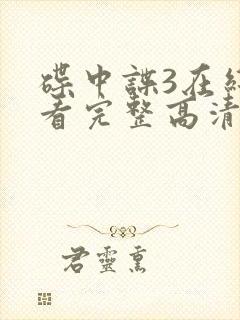 碟中諜3在
看完整高清
君靈熏